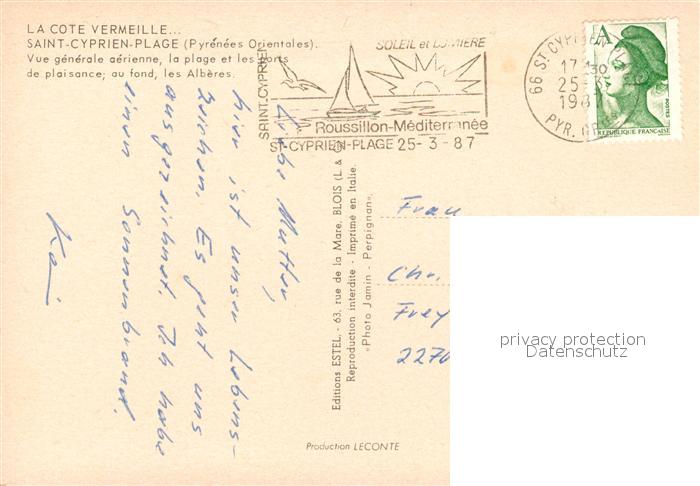 LA COTE VERMEILLE...
SAINT-CYPRIEN-PLAGE (Pyrénées Orientales).
Vue générale aérienne, la plage et les ports
de plaisance; au fond, les Albères.
SAINT CYPRIEN
SOLEIL et LUMIERE
Roussillon-Méditerranée
ST-CYPRIEN-PLAGE 25-3-87
66 ST CYPRIEN
17 30
25-
198
PYR. OR
A
POSTES
REPUBLIQUE FRANCAISE
Liebe Mutter,
hier ist unser Lebens-
zeichen. Es geht uns
ausgezeichnet. Ich habe
einen Sonnenbrand.
Kai
Editions ESTEL. - 63, rue de la Mare, BLOIS (L. &
Reproduction interdite - Imprimé en Italie.
«Photo Jamin - Perpignan».
Frau
Chr.
Frey
2270
privacy protection
Datenschutz
Production LECONTE